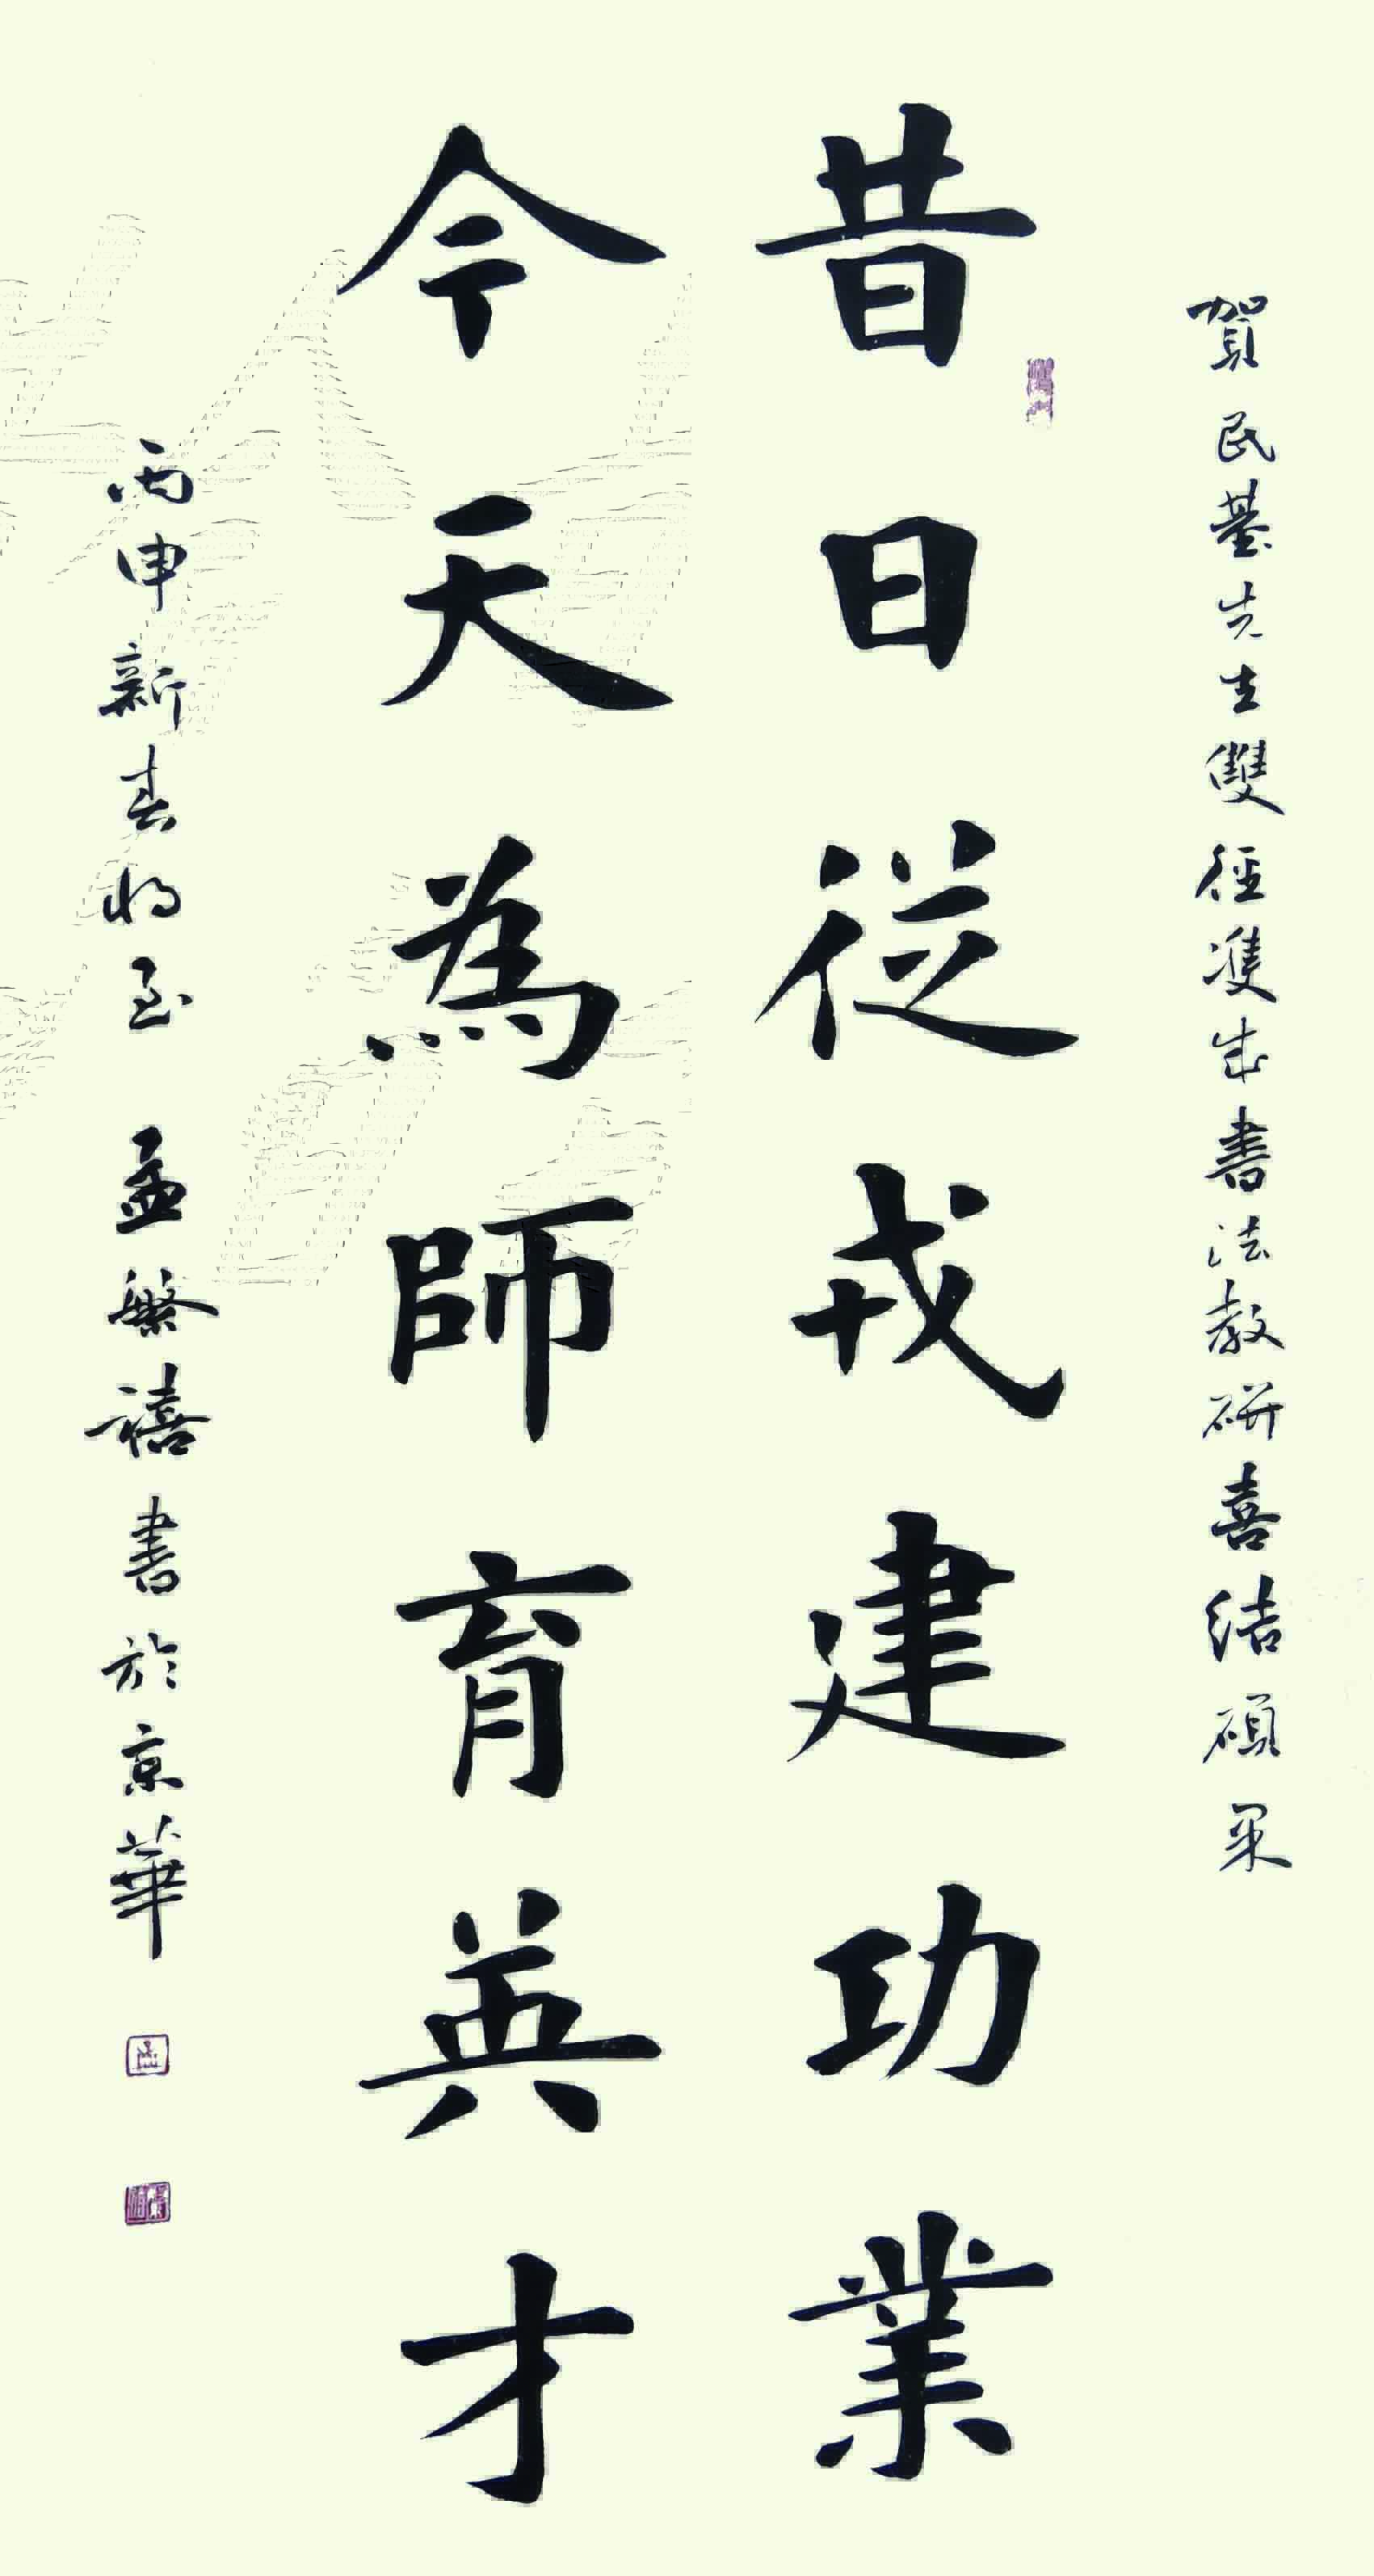 賀民基先生雙徑雙年書法教研喜結碩果
昔日從戎建功業
今天為師育英才
丙申新春將至 孟繁禧書於京華